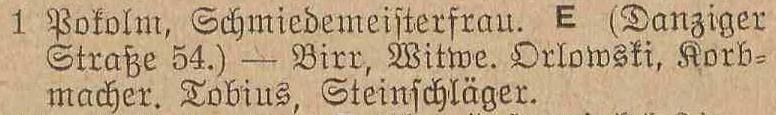 1 Pokolm, Schmiedemeiſterfrau. E (Danziger
Straße 54.) — Birr, Witwe. Orlowski, Korb⸗
macher. Tobius, Steinſchläger.